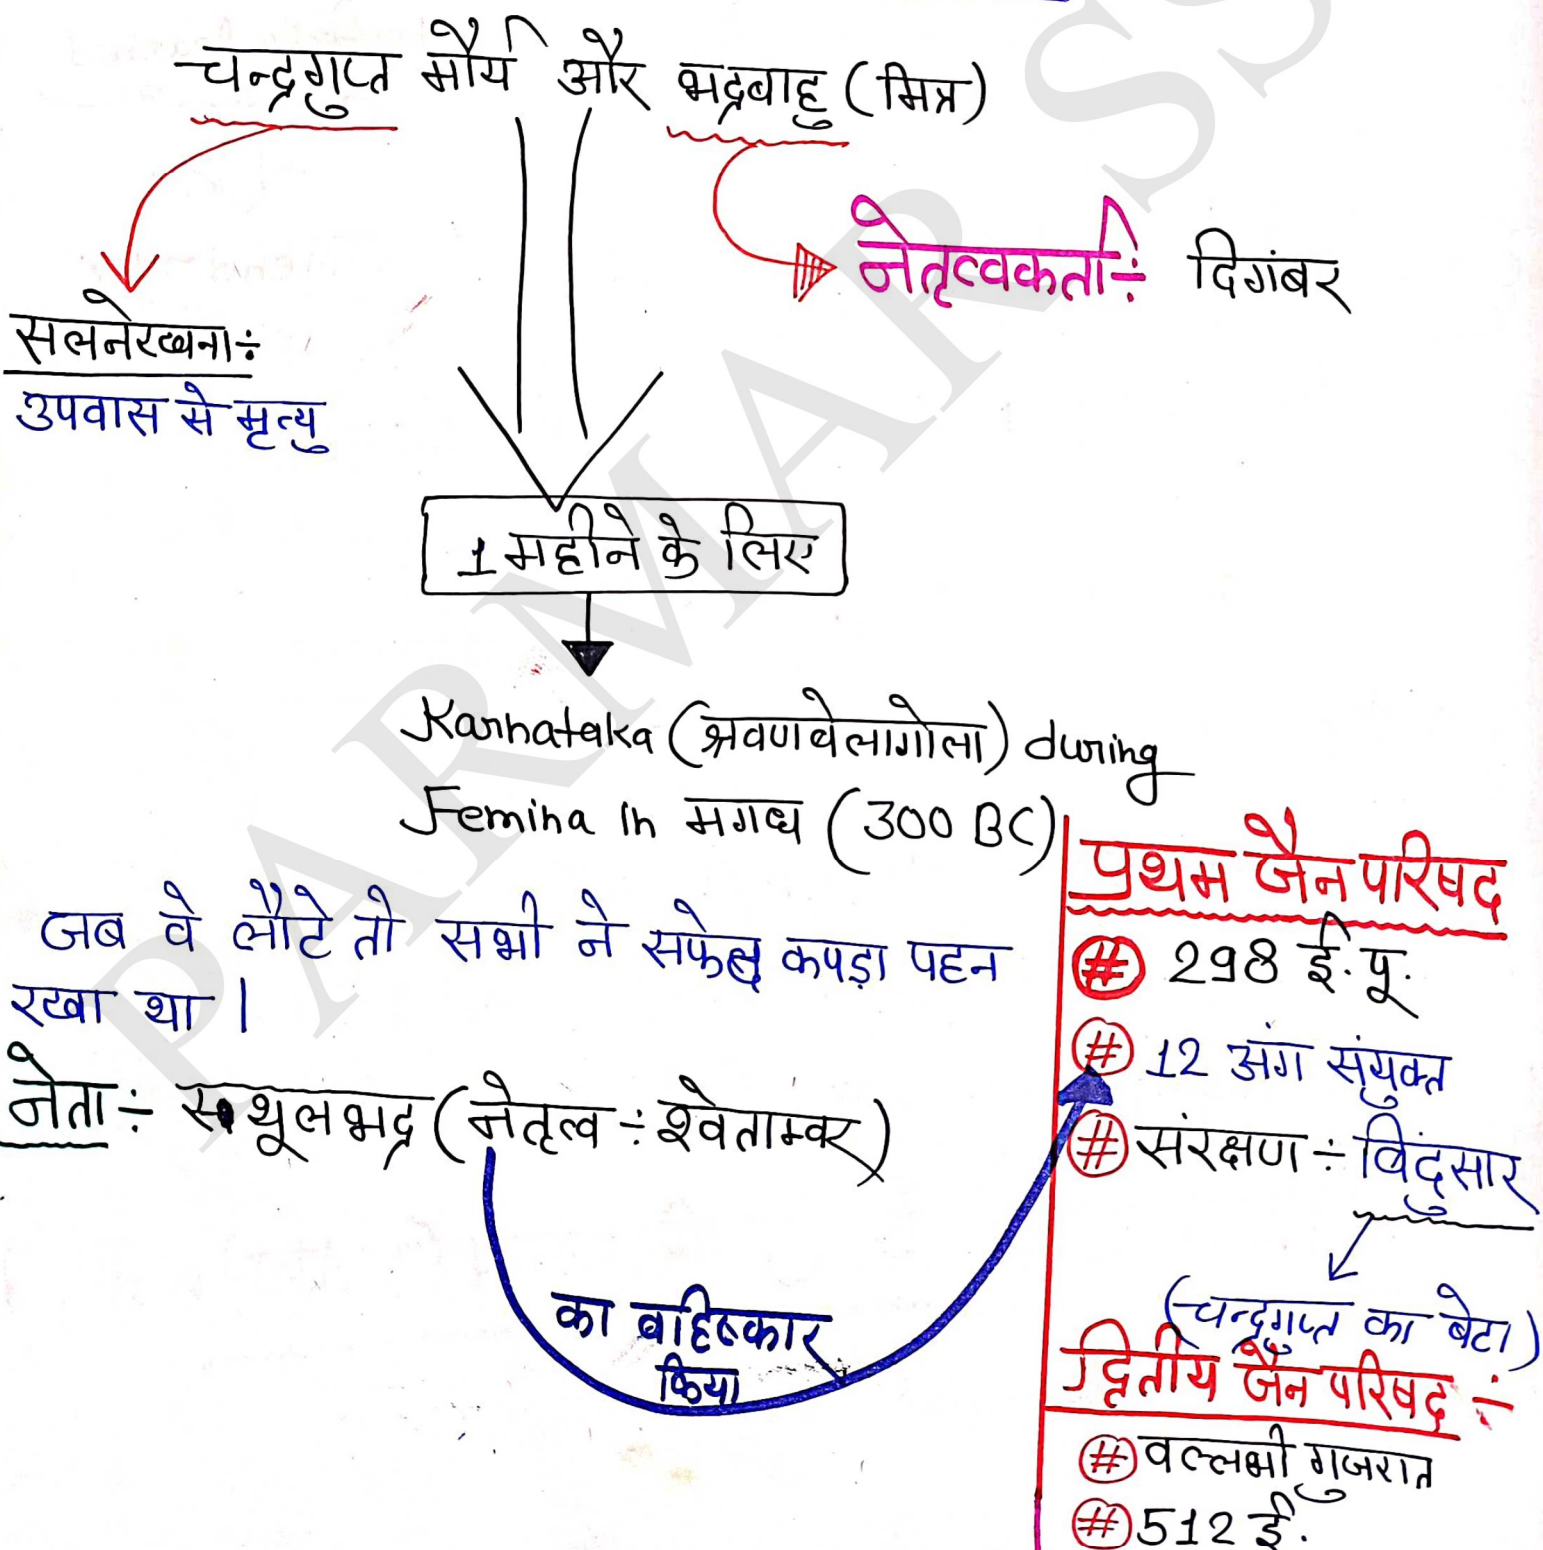 चन्द्रगुप्त मौर्य और भद्रबाहु (मित्र)
नेतृत्वकर्ता÷ दिगंबर
सलनेरव्वना÷
उपवास से मृत्यु
1 महीने के लिए
Karnataka (श्रवणबेलागोला) during
Femina in मगध (300 BC)
जब वे लौटे तो सभी ने सफेद कपड़ा पहन
रखा था |
नेता ÷ स्थूलभद्र (नेतृत्व ÷ श्वेताम्बर)
का बहिष्कार
किया
प्रथम जैन परिषद
# 298 ई. पू.
# 12 अंग संयुक्त
# संरक्षण ÷ बिंदुसार
(चन्द्रगुप्त का बेटा)
द्वितीय जैन परिषद ÷
# वल्लभी गुजरात
# 512 ई.
PARMAR SS